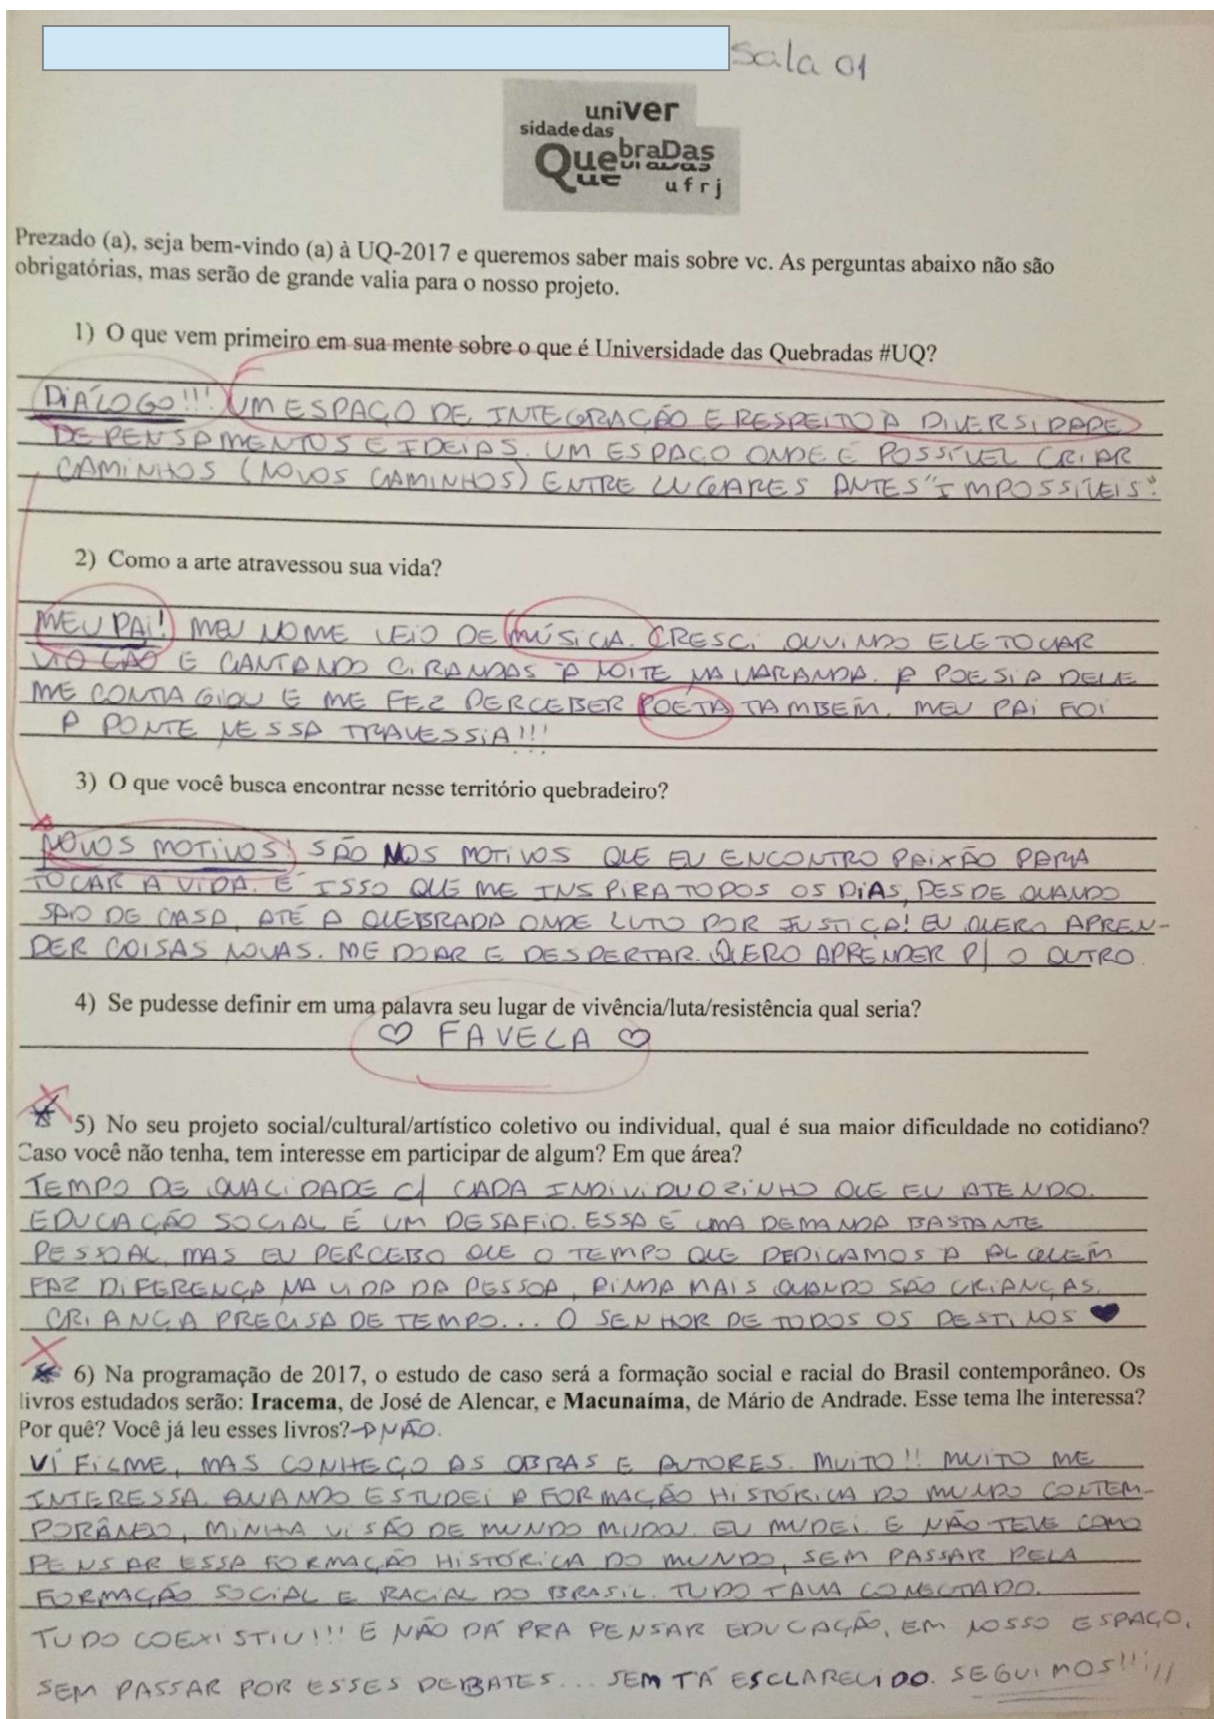 Sala 01
uniVer
sidade das
QuebraDas
ufrj
Prezado (a), seja bem-vindo (a) à UQ-2017 e queremos saber mais sobre vc. As perguntas abaixo não são
obrigatórias, mas serão de grande valia para o nosso projeto.
1) O que vem primeiro em sua mente sobre o que é Universidade das Quebradas #UQ?
DIÁLOGO!!! UM ESPAÇO DE INTEGRAÇÃO E RESPEITO A DIVERSIDADE
DE PENSAMENTOS E IDEIAS. UM ESPAÇO ONDE É POSSÍVEL CRIAR
CAMINHOS (NOVOS CAMINHOS) ENTRE LUGARES ANTES "IMPOSSÍVEIS".
2) Como a arte atravessou sua vida?
MEU PAI! MEU NOME VEIO DE MÚSICA. CRESCI OUVINDO ELE TOCAR
VIOLÃO E CANTANDO CIRANDAS À NOITE NA VARANDA. A POESIA DELE
ME CONTAGIOU E ME FEZ PERCEBER POETA TAMBÉM. MEU PAI FOI
A PONTE NESSA TRAVESSIA!!!
3) O que você busca encontrar nesse território quebradeiro?
NOVOS MOTIVOS! SÃO NOS MOTIVOS QUE EU ENCONTRO PAIXÃO PARA
TOCAR A VIDA. É ISSO QUE ME INSPIRA TODOS OS DIAS, DESDE QUANDO
SAIO DE CASA, ATÉ A QUEBRADA ONDE LUTO POR JUSTIÇA! EU QUERO APREN-
DER COISAS NOVAS. ME DOAR E DESPERTAR. QUERO APRENDER P/ O OUTRO.
4) Se pudesse definir em uma palavra seu lugar de vivência/luta/resistência qual seria?
♡ FAVELA ♡
5) No seu projeto social/cultural/artístico coletivo ou individual, qual é sua maior dificuldade no cotidiano?
Caso você não tenha, tem interesse em participar de algum? Em que área?
TEMPO DE QUALIDADE C/ CADA INDIVIDUOZINHO QUE EU ATENDO.
EDUCAÇÃO SOCIAL É UM DESAFIO. ESSA É UMA DEMANDA BASTANTE
PESSOAL, MAS EU PERCEBO QUE O TEMPO QUE DEDICAMOS A ALGUÉM
FAZ DIFERENÇA NA VIDA DA PESSOA, AINDA MAIS QUANDO SÃO CRIANÇAS.
CRIANÇA PRECISA DE TEMPO... O SENHOR DE TODOS OS DESTINOS ♥
6) Na programação de 2017, o estudo de caso será a formação social e racial do Brasil contemporâneo. Os
livros estudados serão: Iracema, de José de Alencar, e Macunaíma, de Mário de Andrade. Esse tema lhe interessa?
Por quê? Você já leu esses livros? → NÃO.
VI FILME, MAS CONHEÇO AS OBRAS E AUTORES. MUITO!! MUITO ME
INTERESSA. QUANDO ESTUDEI A FORMAÇÃO HISTÓRICA DO MUNDO CONTEM-
PORÂNEO, MINHA VISÃO DE MUNDO MUDOU. EU MUDEI. E NÃO TEVE COMO
PENSAR ESSA FORMAÇÃO HISTÓRICA DO MUNDO, SEM PASSAR PELA
FORMAÇÃO SOCIAL E RACIAL DO BRASIL. TUDO TAVA CONECTADO.
TUDO COEXISTIU!!! E NÃO DÁ PRA PENSAR EDUCAÇÃO, EM NOSSO ESPAÇO,
SEM PASSAR POR ESSES DEBATES... SEM TÁ ESCLARECIDO. SEGUIMOS!!!!!